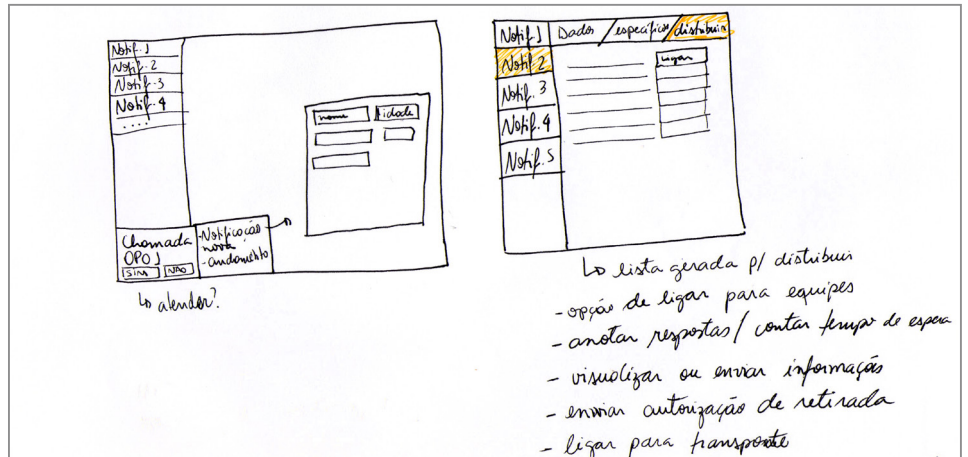 Notif. 1
Notif. 2
Notif. 3
Notif. 4
.....
nome
idade
Chamada
OPO 1
SIM
NÃO
- Notificação
nova
- andamento
↳ atender?
Notif. 1
Dados
específicos
distribuir
Notif. 2
Notif. 3
Notif. 4
Notif. 5
Ligar
↳ lista gerada p/ distribuir
- opção de ligar para equipes
- anotar respostas / contar tempo de espera
- visualizar ou enviar informações
- enviar autorização de retirada
- ligar para transporte